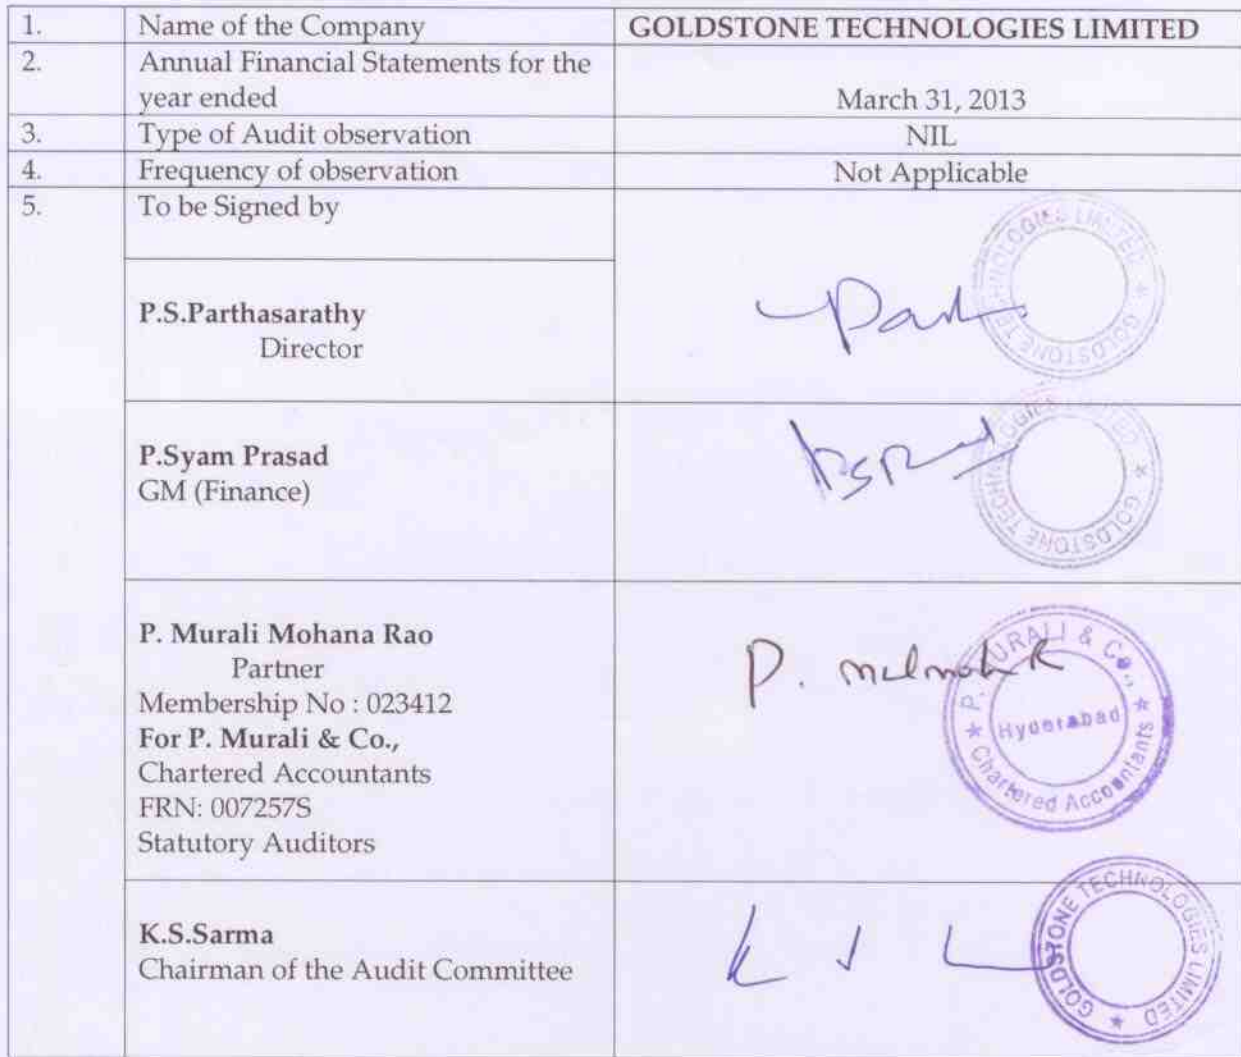 1. Name of the Company GOLDSTONE TECHNOLOGIES LIMITED
2. Annual Financial Statements for the
year ended March 31, 2013
3. Type of Audit observation NIL
4. Frequency of observation Not Applicable
5. To be Signed by
P.S.Parthasarathy
Director
GOLDSTONE TECHNOLOGIES LIMITED
P.Syam Prasad
GM (Finance)
GOLDSTONE TECHNOLOGIES LIMITED
P. Murali Mohana Rao
Partner
Membership No : 023412
For P. Murali & Co.,
Chartered Accountants
FRN: 007257S
Statutory Auditors
P. MURALI & Co.,
Hyderabad
Chartered Accountants
K.S.Sarma
Chairman of the Audit Committee
GOLDSTONE TECHNOLOGIES LIMITED